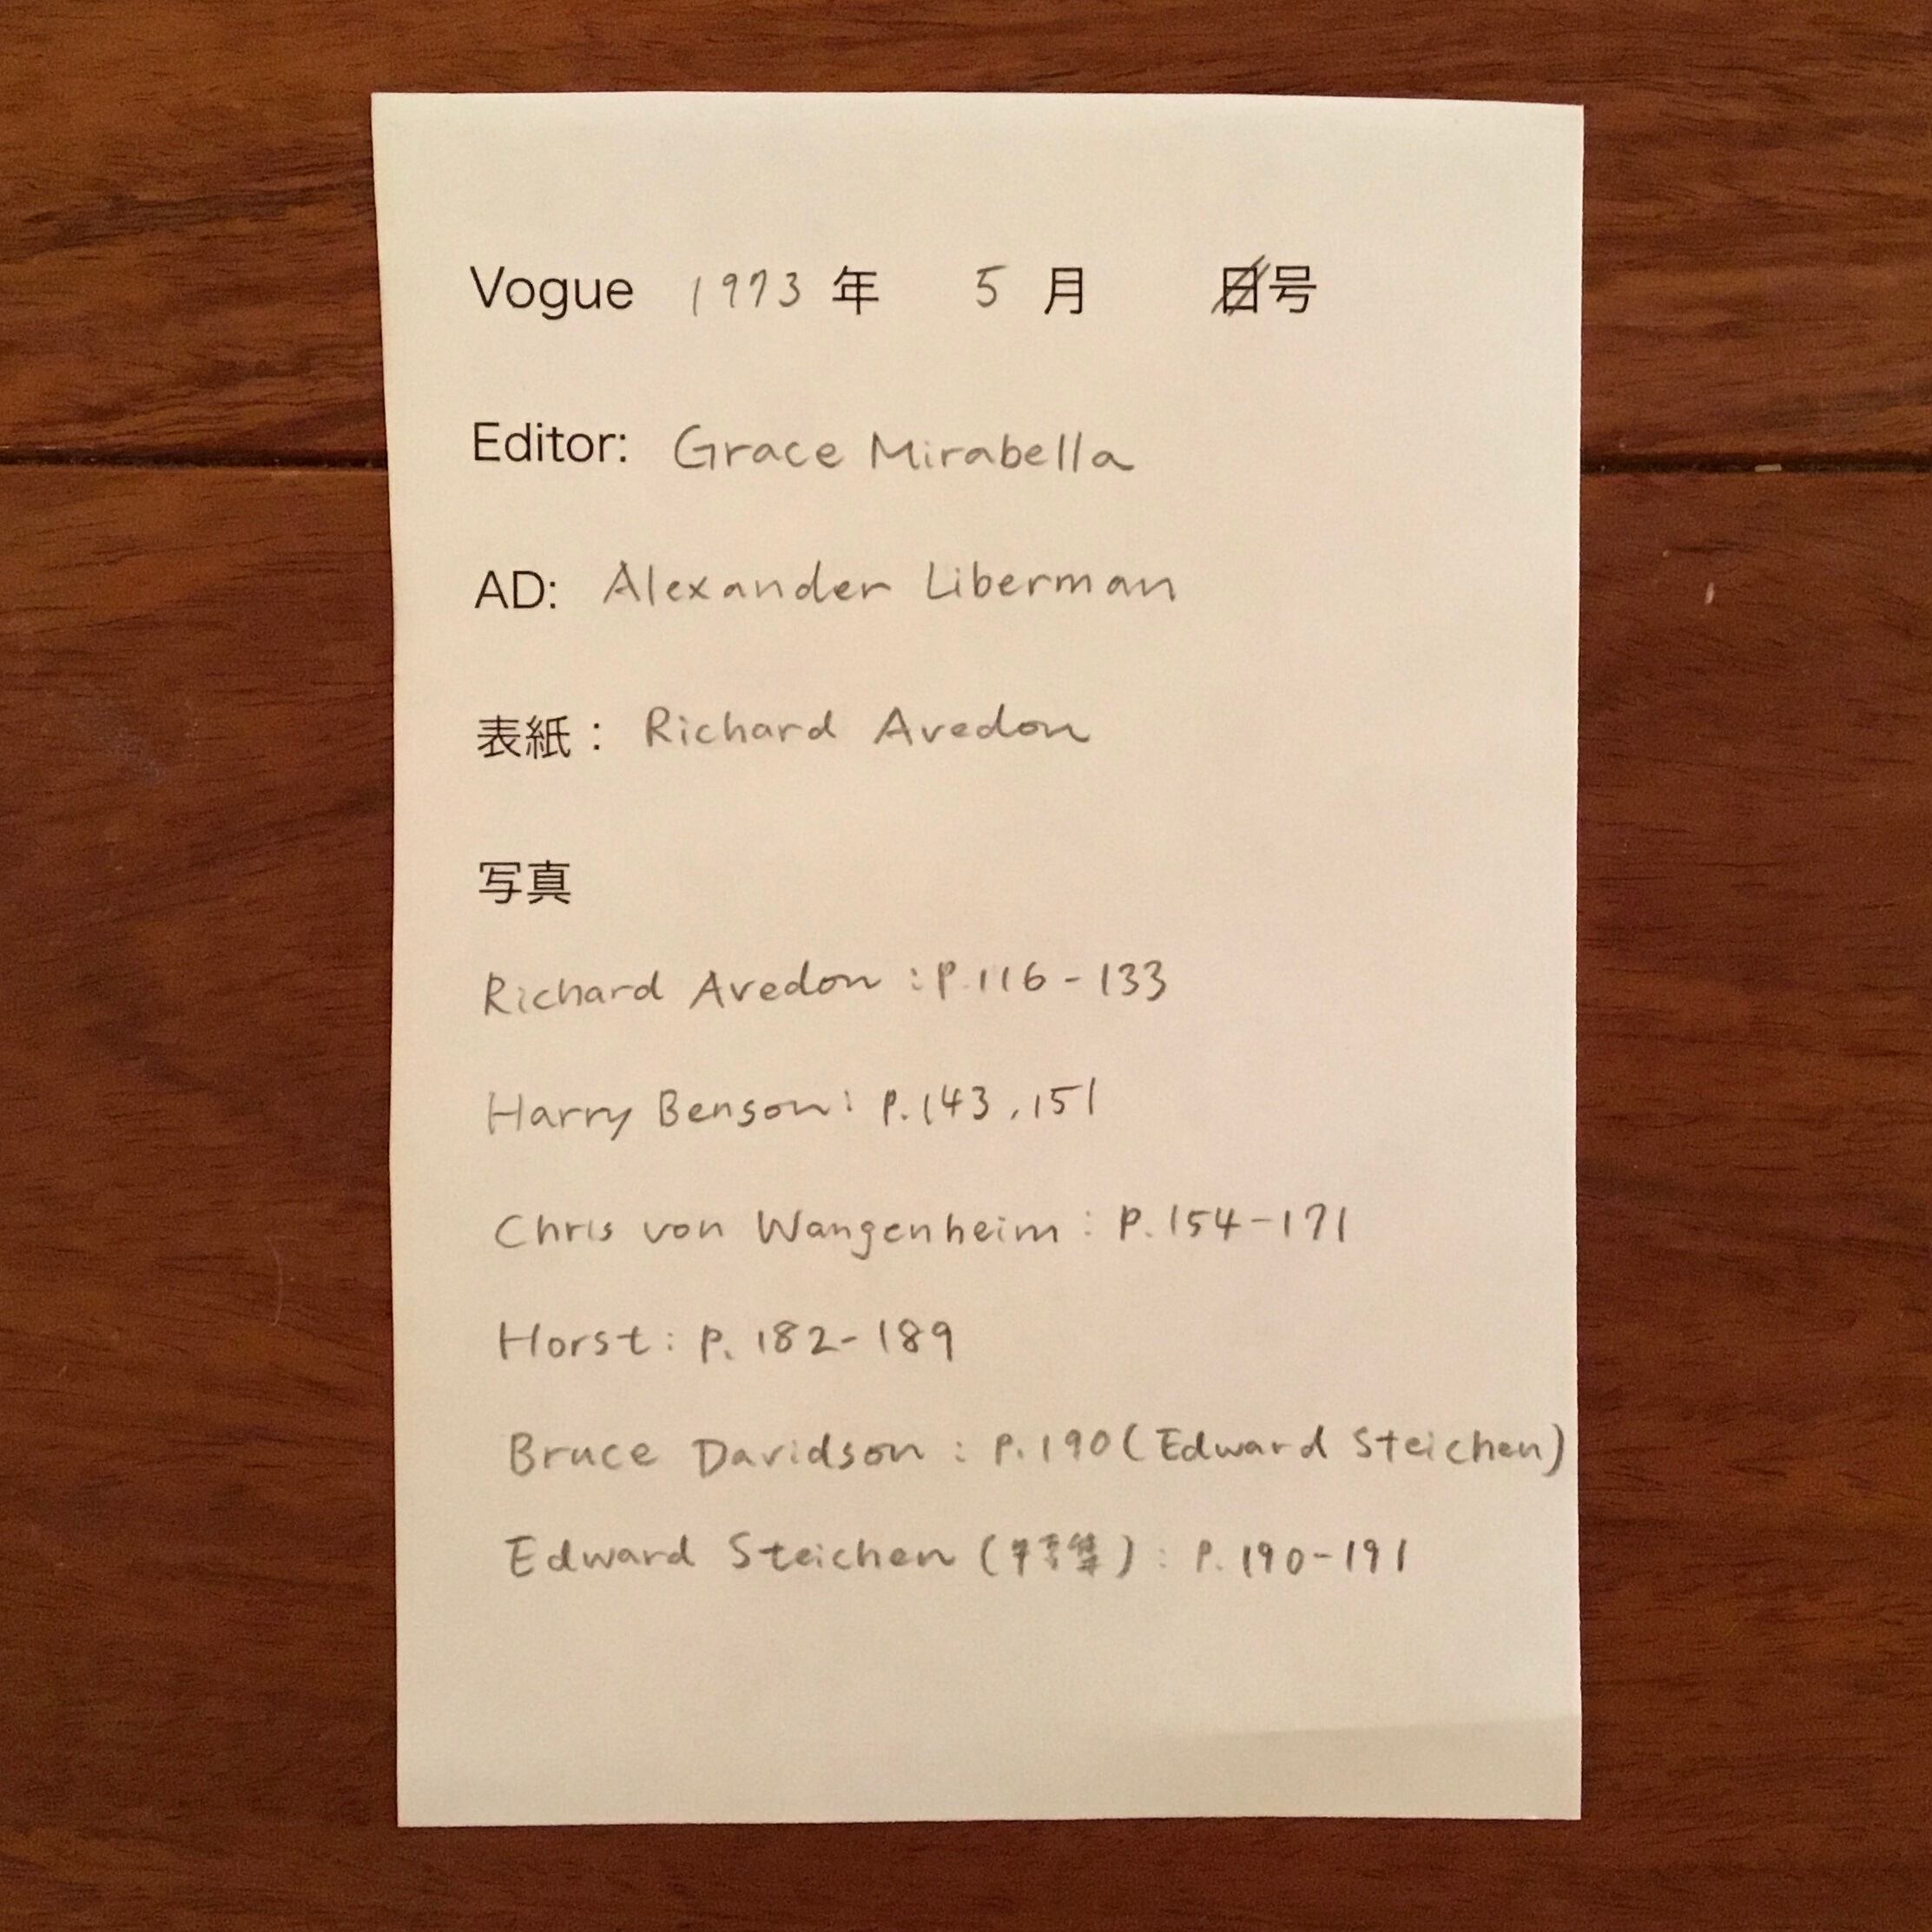 Vogue 1973 年 5 月 日号
Editor: Grace Mirabella
AD: Alexander Liberman
表紙： Richard Avedon
写真
Richard Avedon : P.116-133
Harry Benson: P.143, 151
Chris von Wangenheim : P.154-171
Horst: P. 182-189
Bruce Davidson : P.190 (Edward Steichen)
Edward Steichen (特集) : P. 190-191